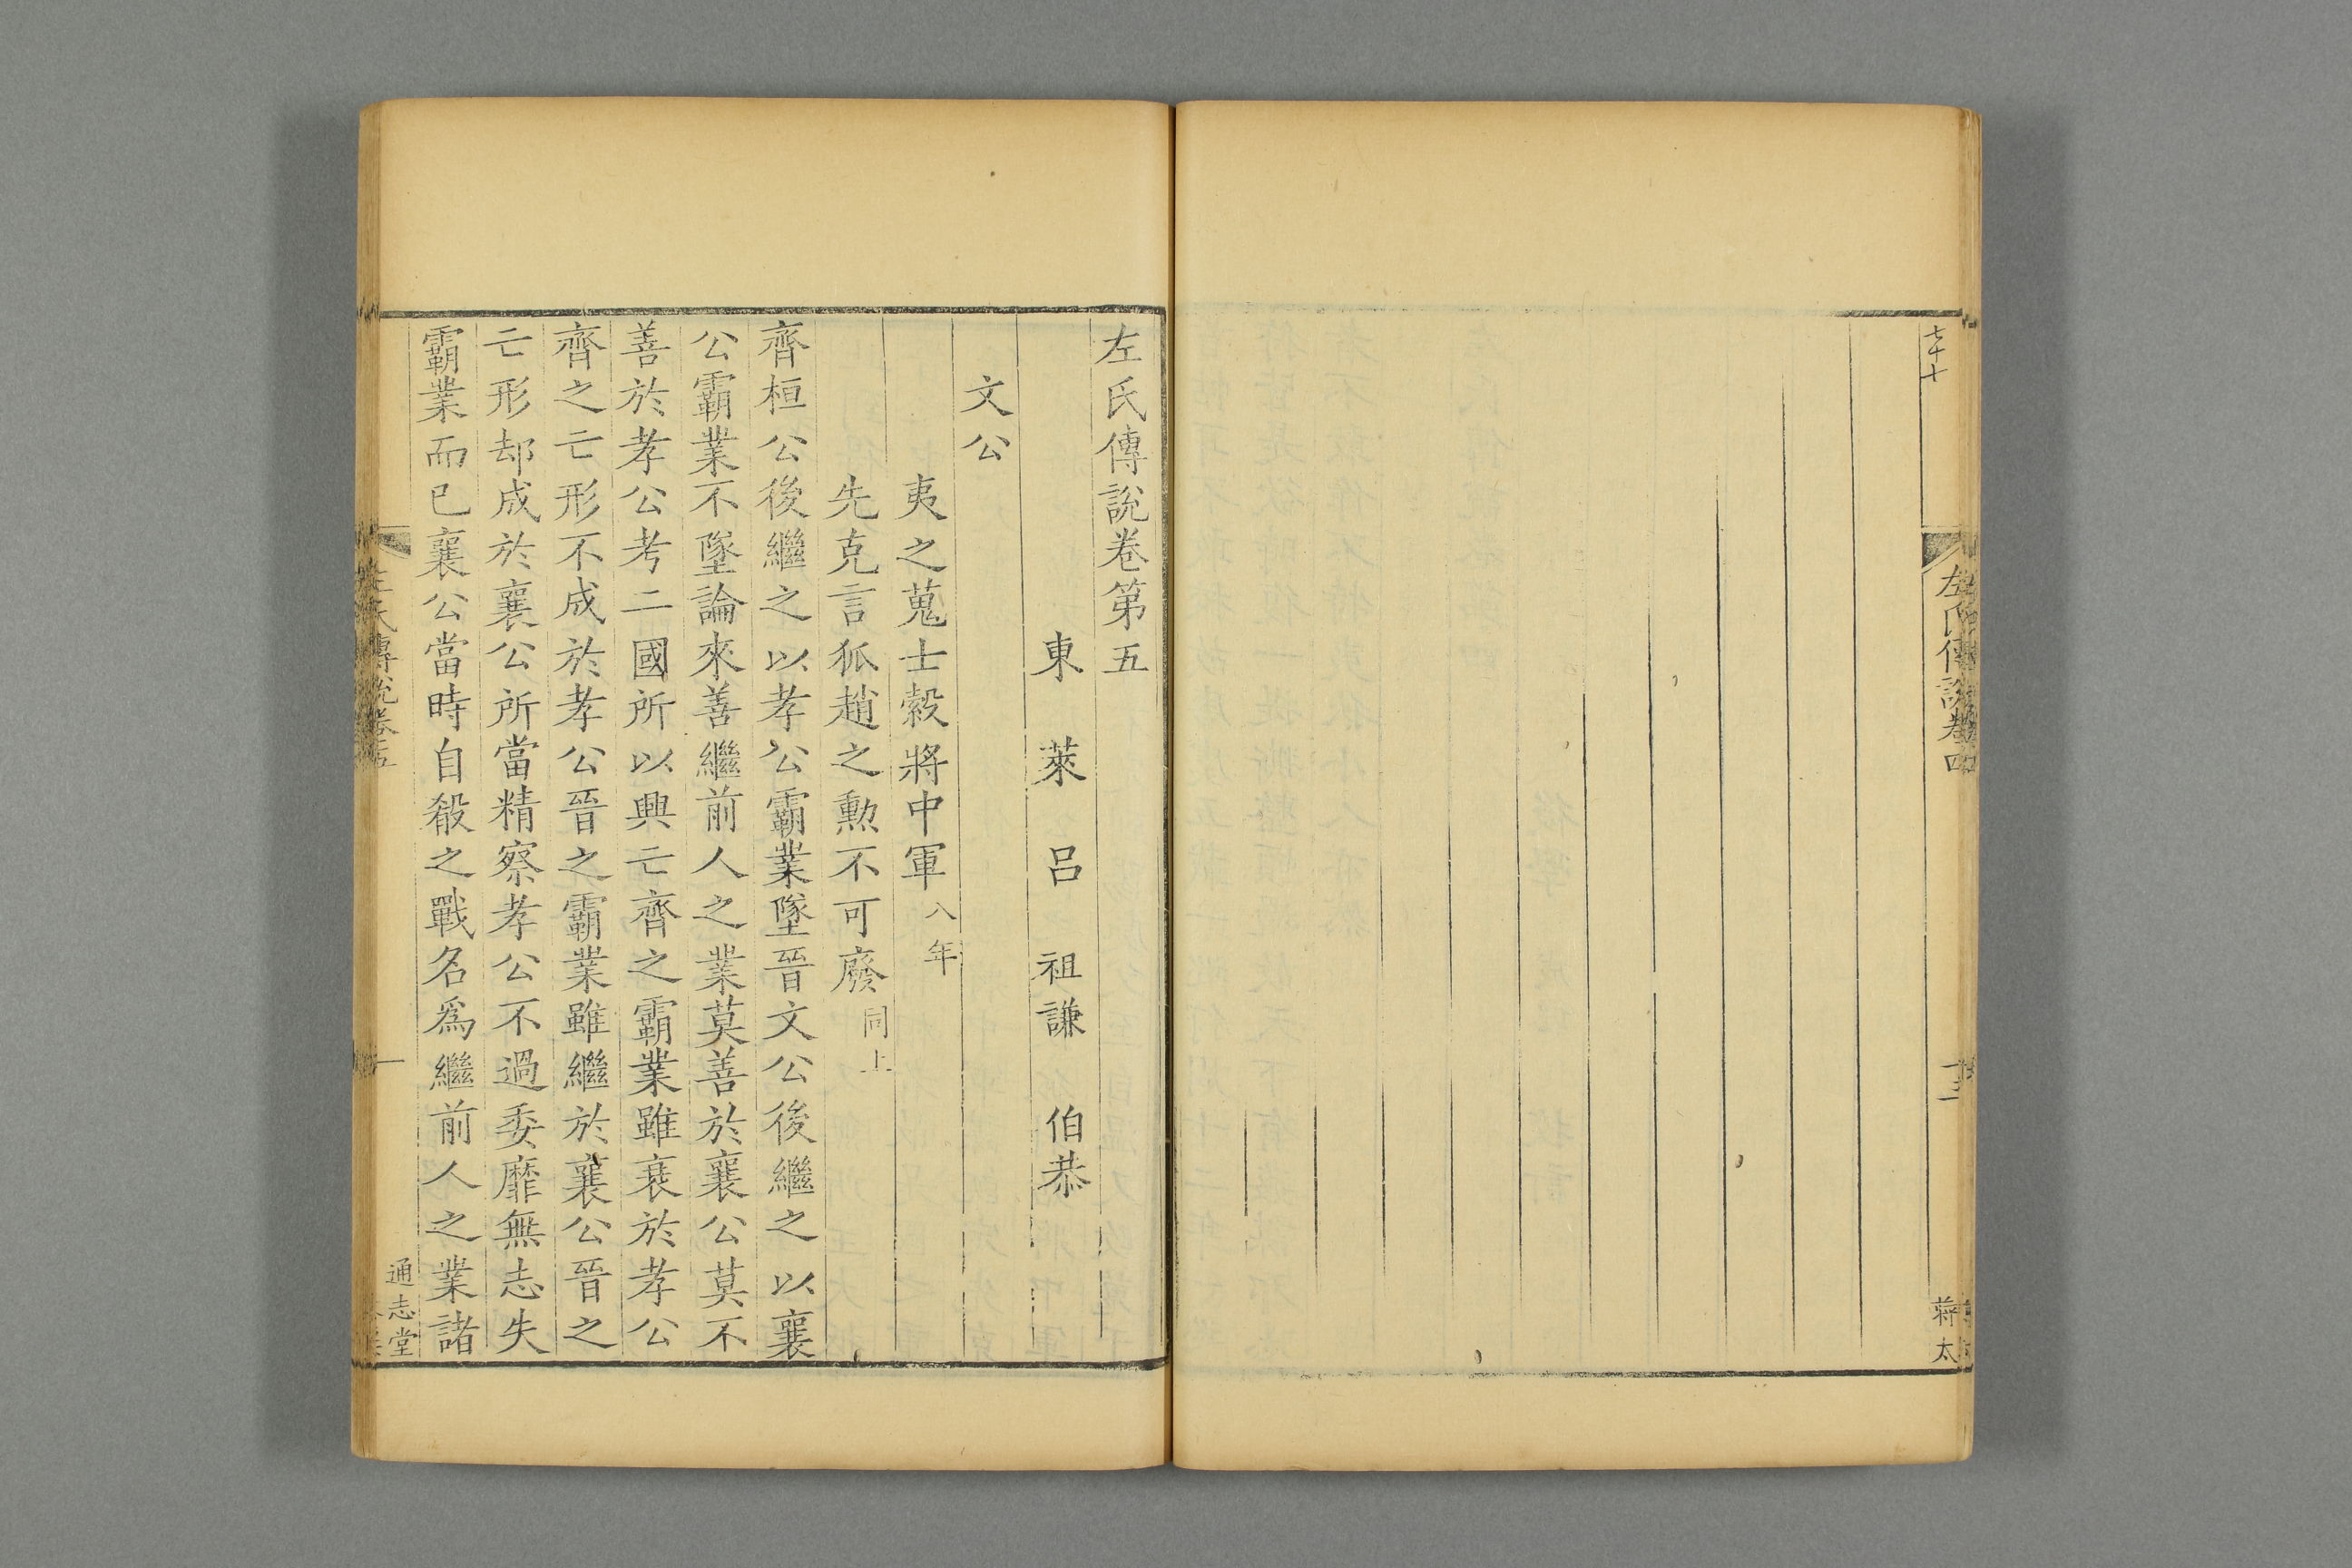 七十十
左氏傳說卷四
蔣太
左氏傳說卷第五
東萊呂祖謙伯恭
文公
夷之蒐士縠將中軍八年
先克言狐趙之勲不可廢同上
齊桓公後繼之以孝公霸業墜晉文公後繼之以襄
公霸業不墜論來善繼前人之業莫善於襄公莫不
善於孝公考二國所以興亡齊之霸業雖衰於孝公
齊之亡形不成於孝公晉之霸業雖繼於襄公晉之
亡形却成於襄公所當精察孝公不過委靡無志失
霸業而已襄公當時自殽之戰名爲繼前人之業諸
左氏傳說卷五
一
通志堂